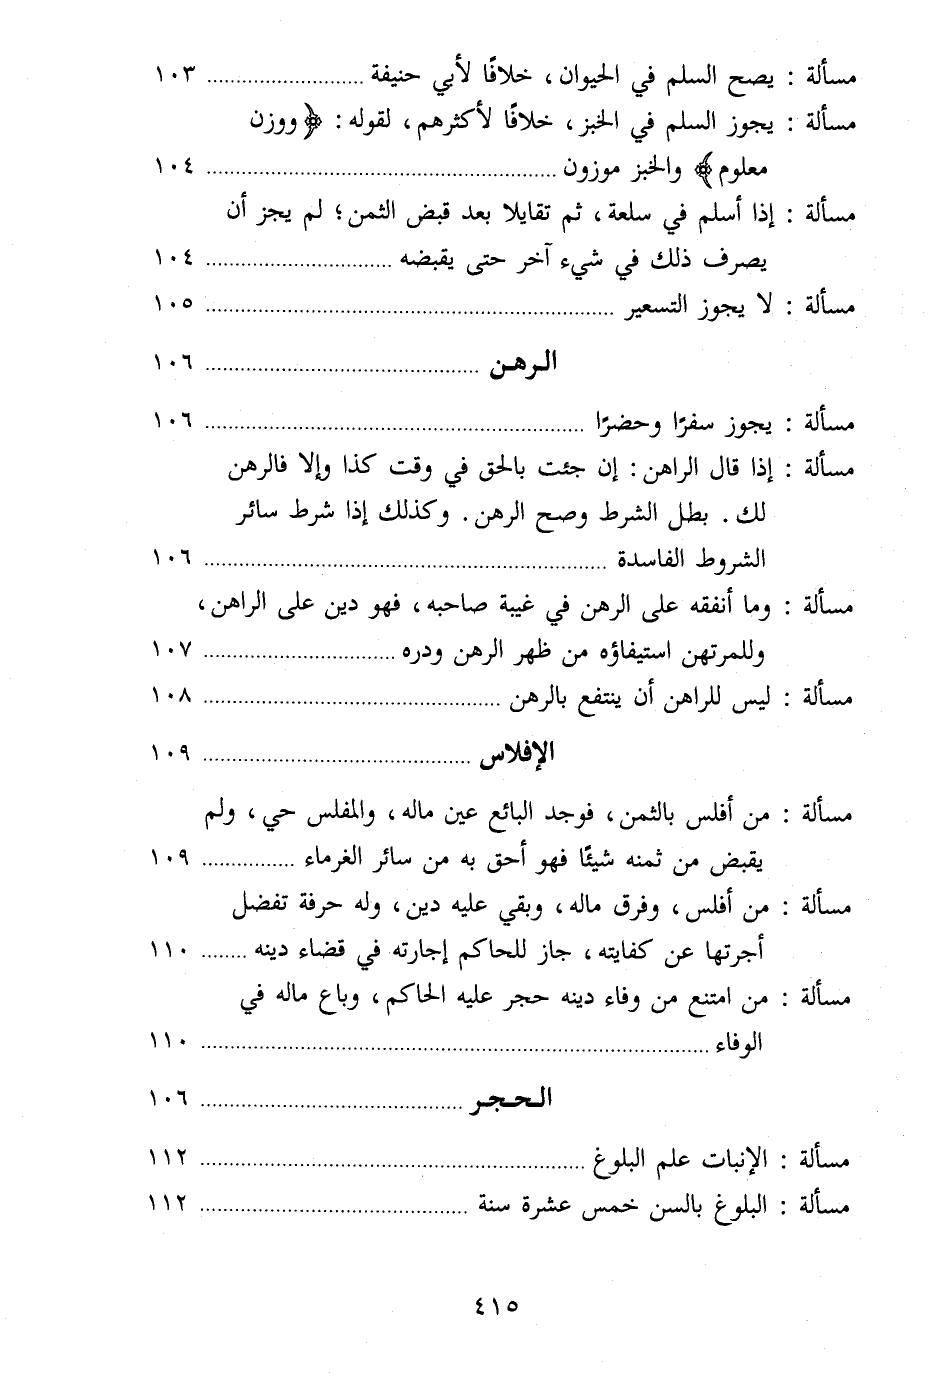 مسألة : يصح السلم في الحيوان، خلافًا لأبي حنيفة .......................... ١٠٣
مسألة : يجوز السلم في الخبز، خلافًا لأكثرهم، لقوله: ﴿ووزن
معلوم﴾ والخبز موزون .......................................................... ١٠٤
مسألة : إذا أسلم في سلعة، ثم تقايلا بعد قبض الثمن؛ لم يجز أن
يصرف ذلك في شيء آخر حتى يقبضه ............................... ١٠٤
مسألة : لا يجوز التسعير .................................................................... ١٠٥
الرهن .............................................. ١٠٦
مسألة : يجوز سفرًا وحضرًا ............................................................... ١٠٦
مسألة : إذا قال الراهن: إن جئت بالحق في وقت كذا وإلا فالرهن
لك. بطل الشرط وصح الرهن. وكذلك إذا شرط سائر
الشروط الفاسدة ................................................................... ١٠٦
مسألة : وما أنفقه على الرهن في غيبة صاحبه، فهو دين على الراهن،
وللمرتهن استيفاؤه من ظهر الرهن ودره ................................ ١٠٧
مسألة : ليس للراهن أن ينتفع بالرهن .................................................. ١٠٨
الإفلاس ............................................. ١٠٩
مسألة : من أفلس بالثمن، فوجد البائع عين ماله، والمفلس حي، ولم
يقبض من ثمنه شيئًا فهو أحق به من سائر الغرماء ................ ١٠٩
مسألة : من أفلس، وفرق ماله، وبقي عليه دين، وله حرفة تفضل
أجرتها عن كفايته، جاز للحاكم إجارته في قضاء دينه ........ ١١٠
مسألة : من امتنع من وفاء دينه حجر عليه الحاكم، وباع ماله في
الوفاء ..................................................................................... ١١٠
الحجر ............................................ ١٠٦
مسألة : الإنبات علم البلوغ ................................................................ ١١٢
مسألة : البلوغ بالسن خمس عشرة سنة ............................................. ١١٢
٤١٥